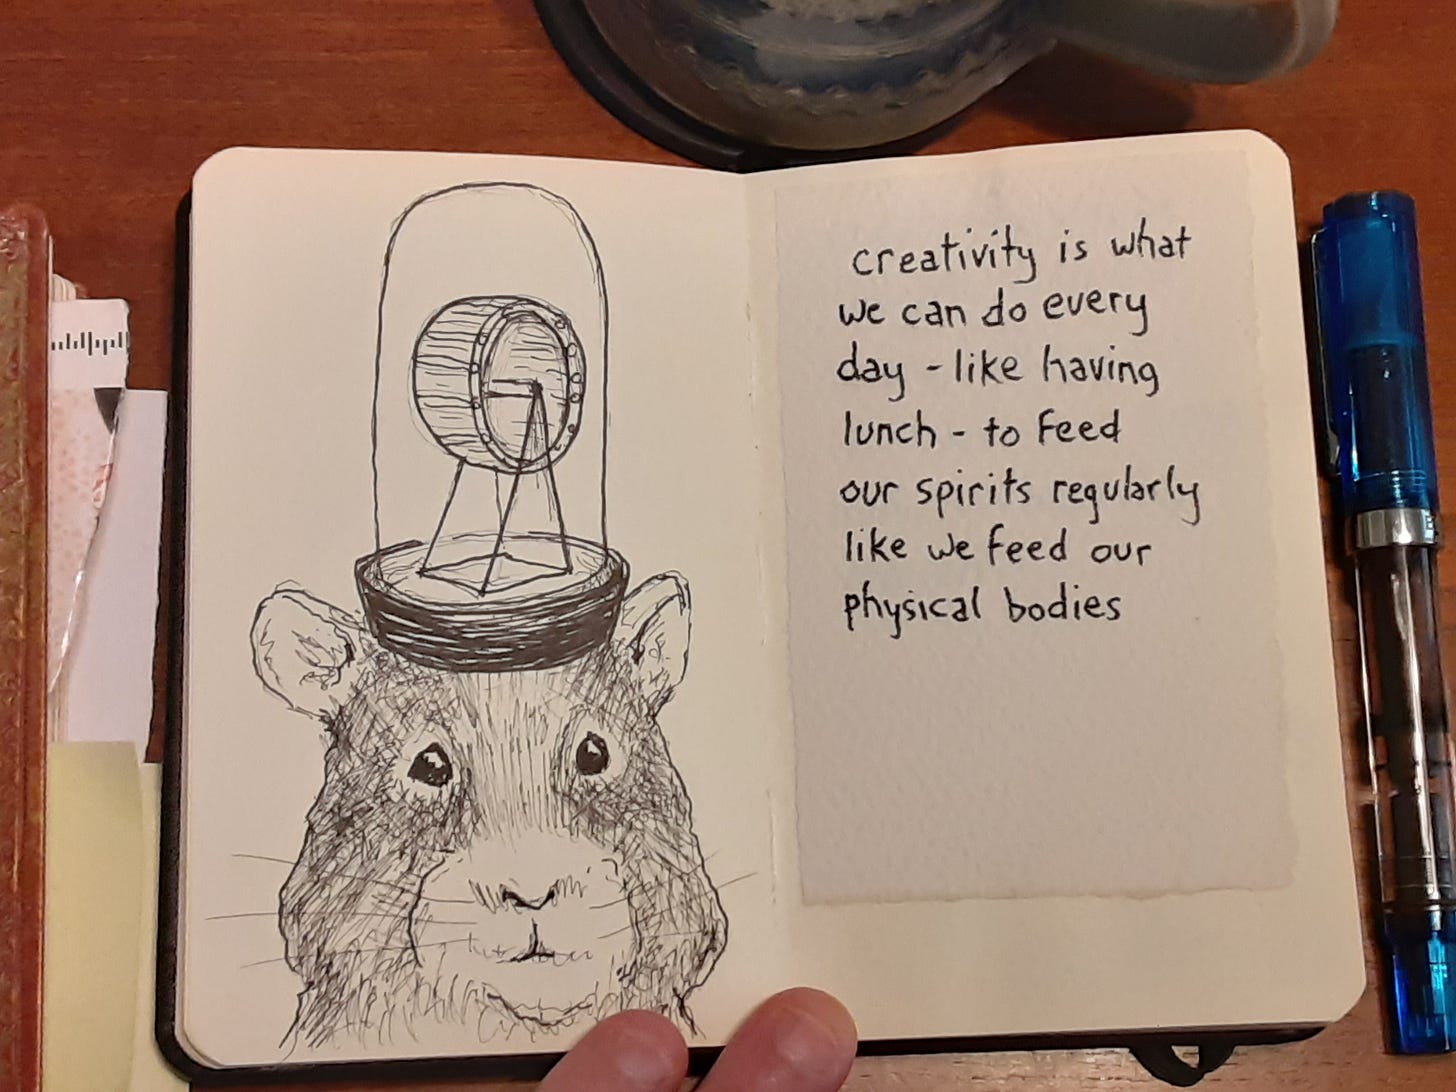 creativity is what
we can do every
day - like having
lunch - to feed
our spirits regularly
like we feed our
physical bodies